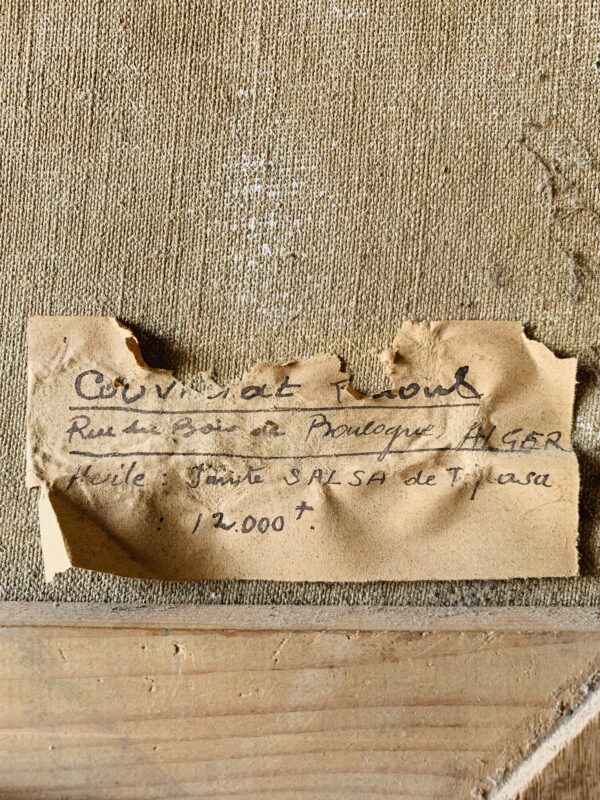 Rue du Bois de Boulogne ALGER
Huile : Sainte SALSA de Tipasa
: 12.000